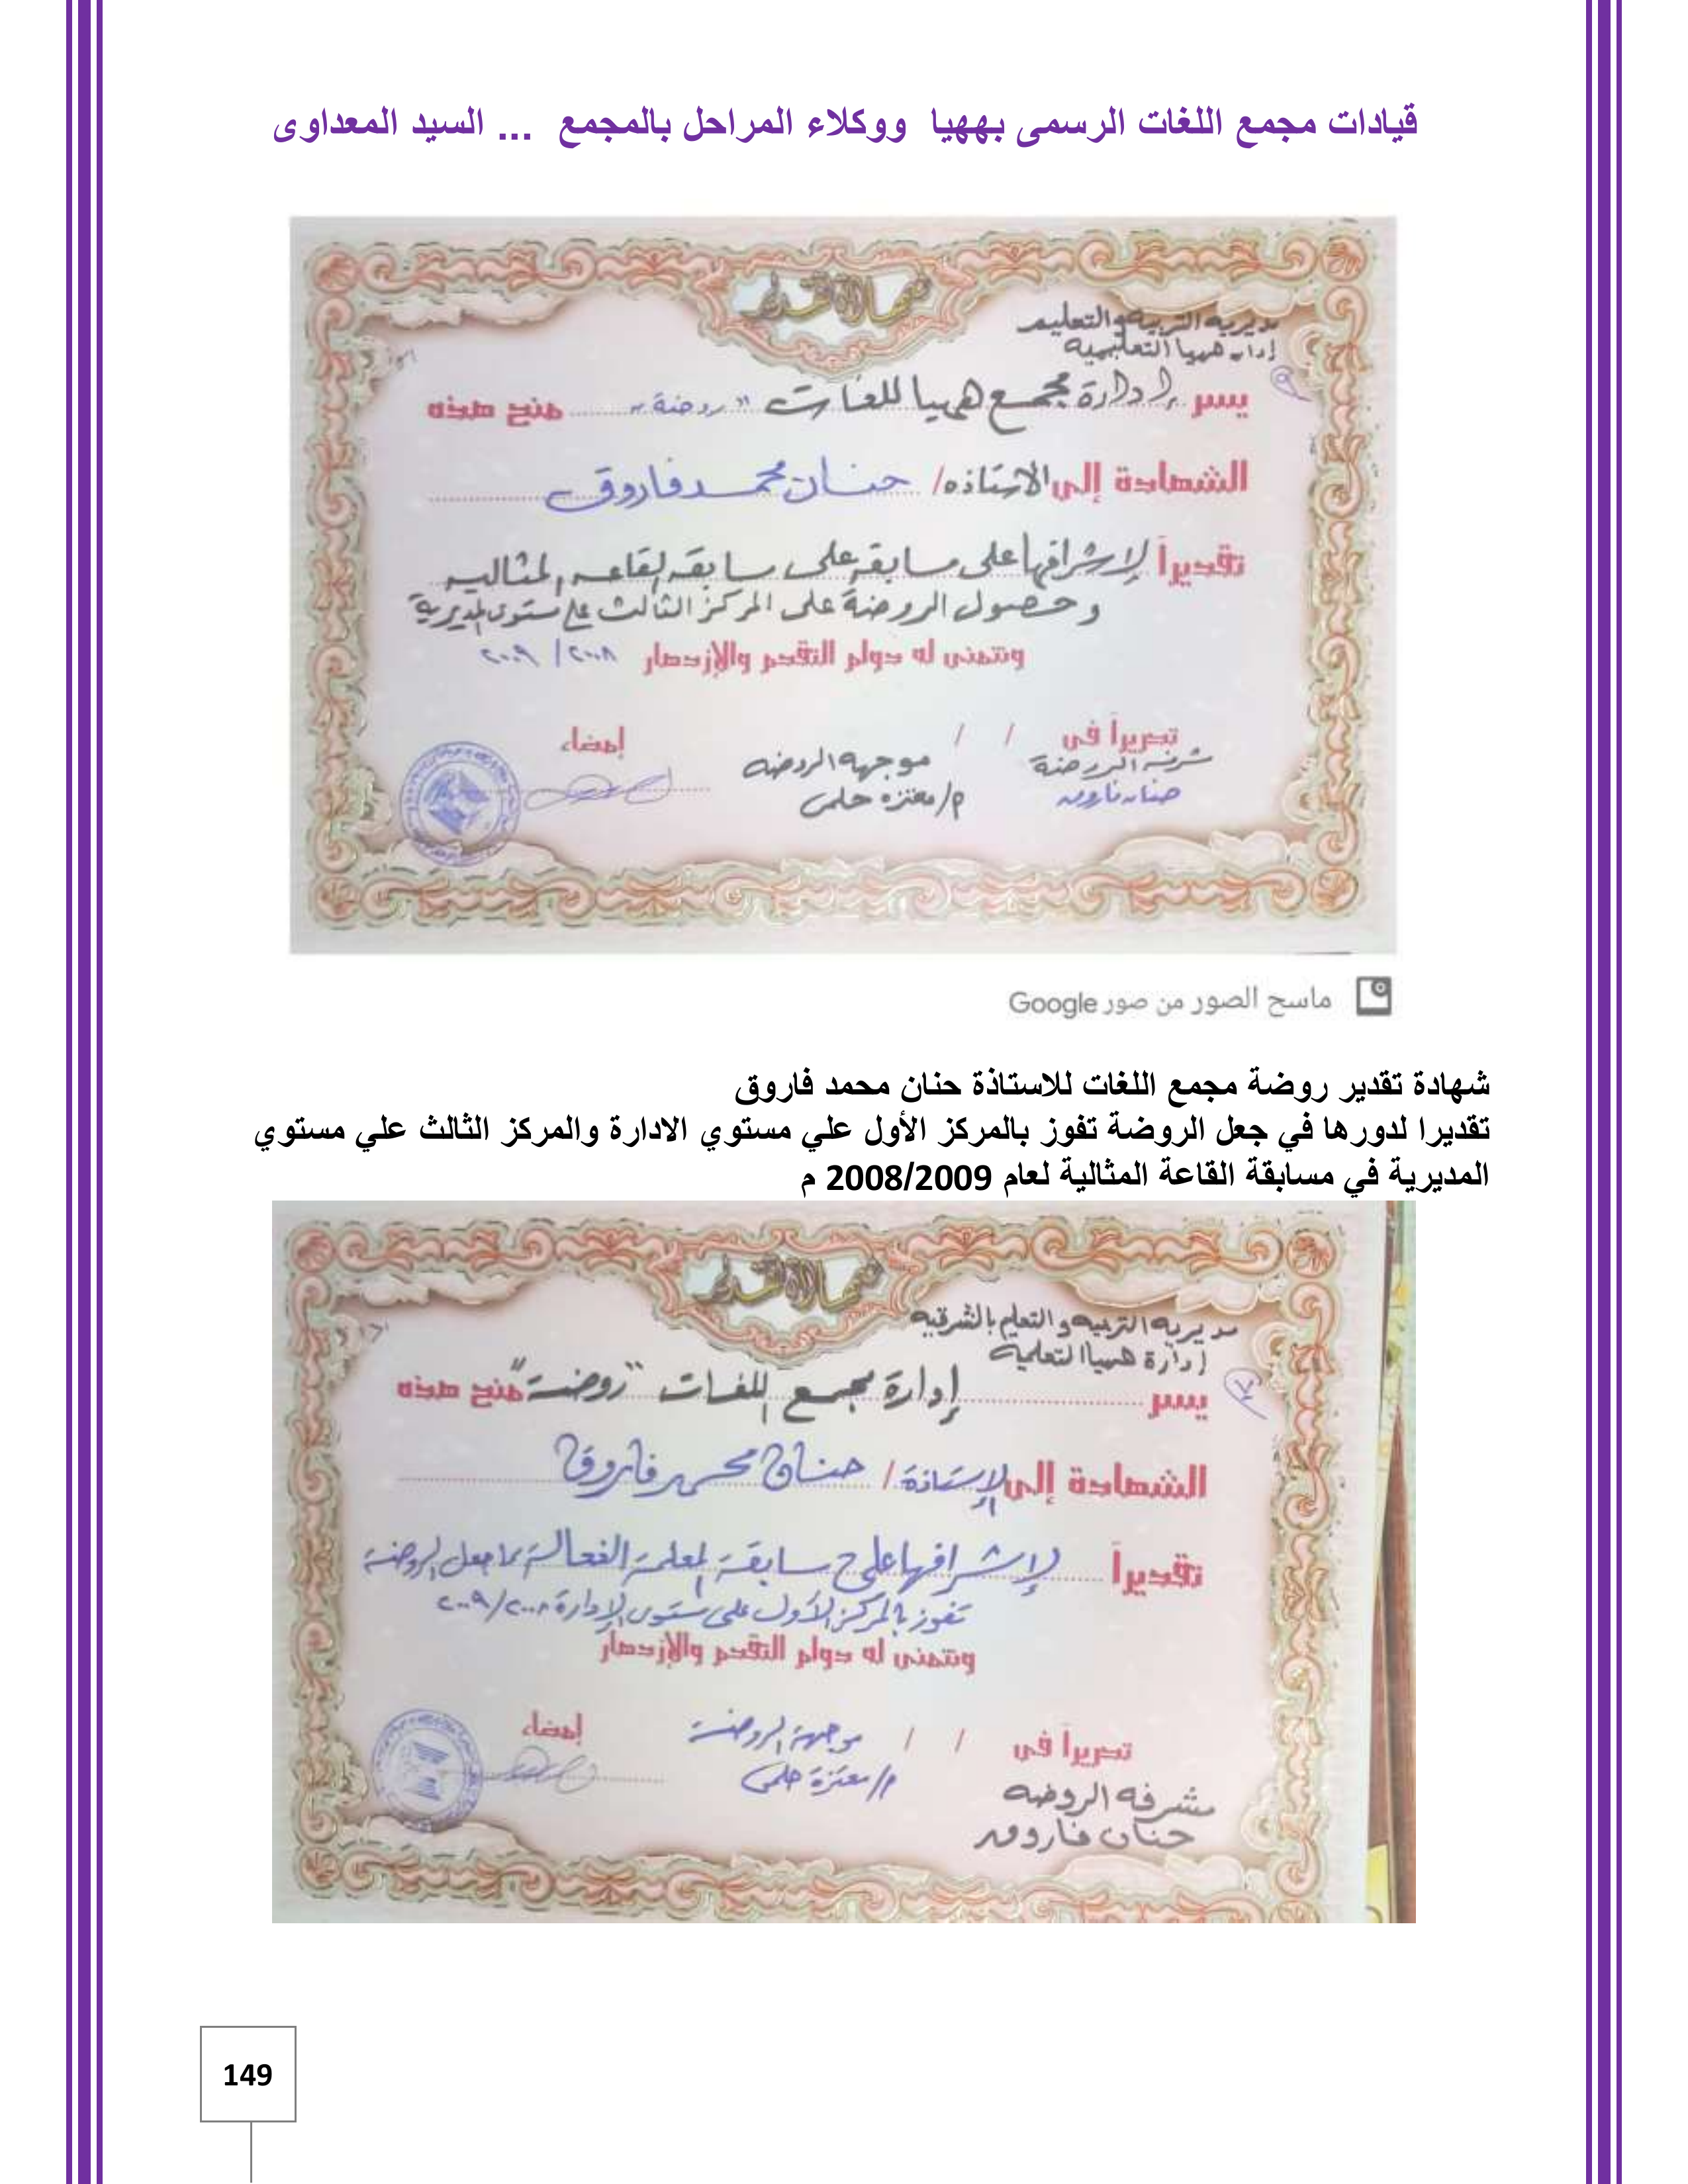 قيادات مجمع اللغات الرسمى بههيا ووكلاء المراحل بالمجمع ... السيد المعداوى
شهادة تقدير
مديرية التربية والتعليم
إدارة ههيا التعليمية
يسر إدارة مجمع ههيا للغات "روضة" منح هذه
الشهادة إلى الاستاذه / حنان محمد فاروق
تقديراً لإشرافها على مسابقة على مسابقة القاعه المثاليه
وحصول الروضة على المركز الثالث على مستوى المديرية
ونتمنى له دوام التقدم والإزدهار ٢٠٠٨ / ٢٠٠٩
تحريراً فى / / إمضاء
مشرفة الروضة موجهة الروضه
حنان فاروق م/ معتزه حلمى
ماسح الصور من صور Google
شهادة تقدير روضة مجمع اللغات للاستاذة حنان محمد فاروق
تقديرا لدورها في جعل الروضة تفوز بالمركز الأول علي مستوي الادارة والمركز الثالث علي مستوي
المديرية في مسابقة القاعة المثالية لعام 2008/2009 م
شهادة تقدير
مديرية التربيه والتعليم بالشرقيه
إدارة ههيا التعلمية
يسر إدارة مجمع اللغات "روضة" منح هذه
الشهادة إلى الإستاذة / حنان محمد فاروق
تقديراً لإشرافها على مسابقة المعلمة الفعالة مما جعل الروضة
تفوز بالمركز الأول على مستوى الإدارة ٢٠٠٨/٢٠٠٩
ونتمنى له دوام التقدم والإزدهار
تحريراً فى / / موجهة الروضة إمضاء
مشرفه الروضه م/ معتزة حلمى
حنان فاروق
149